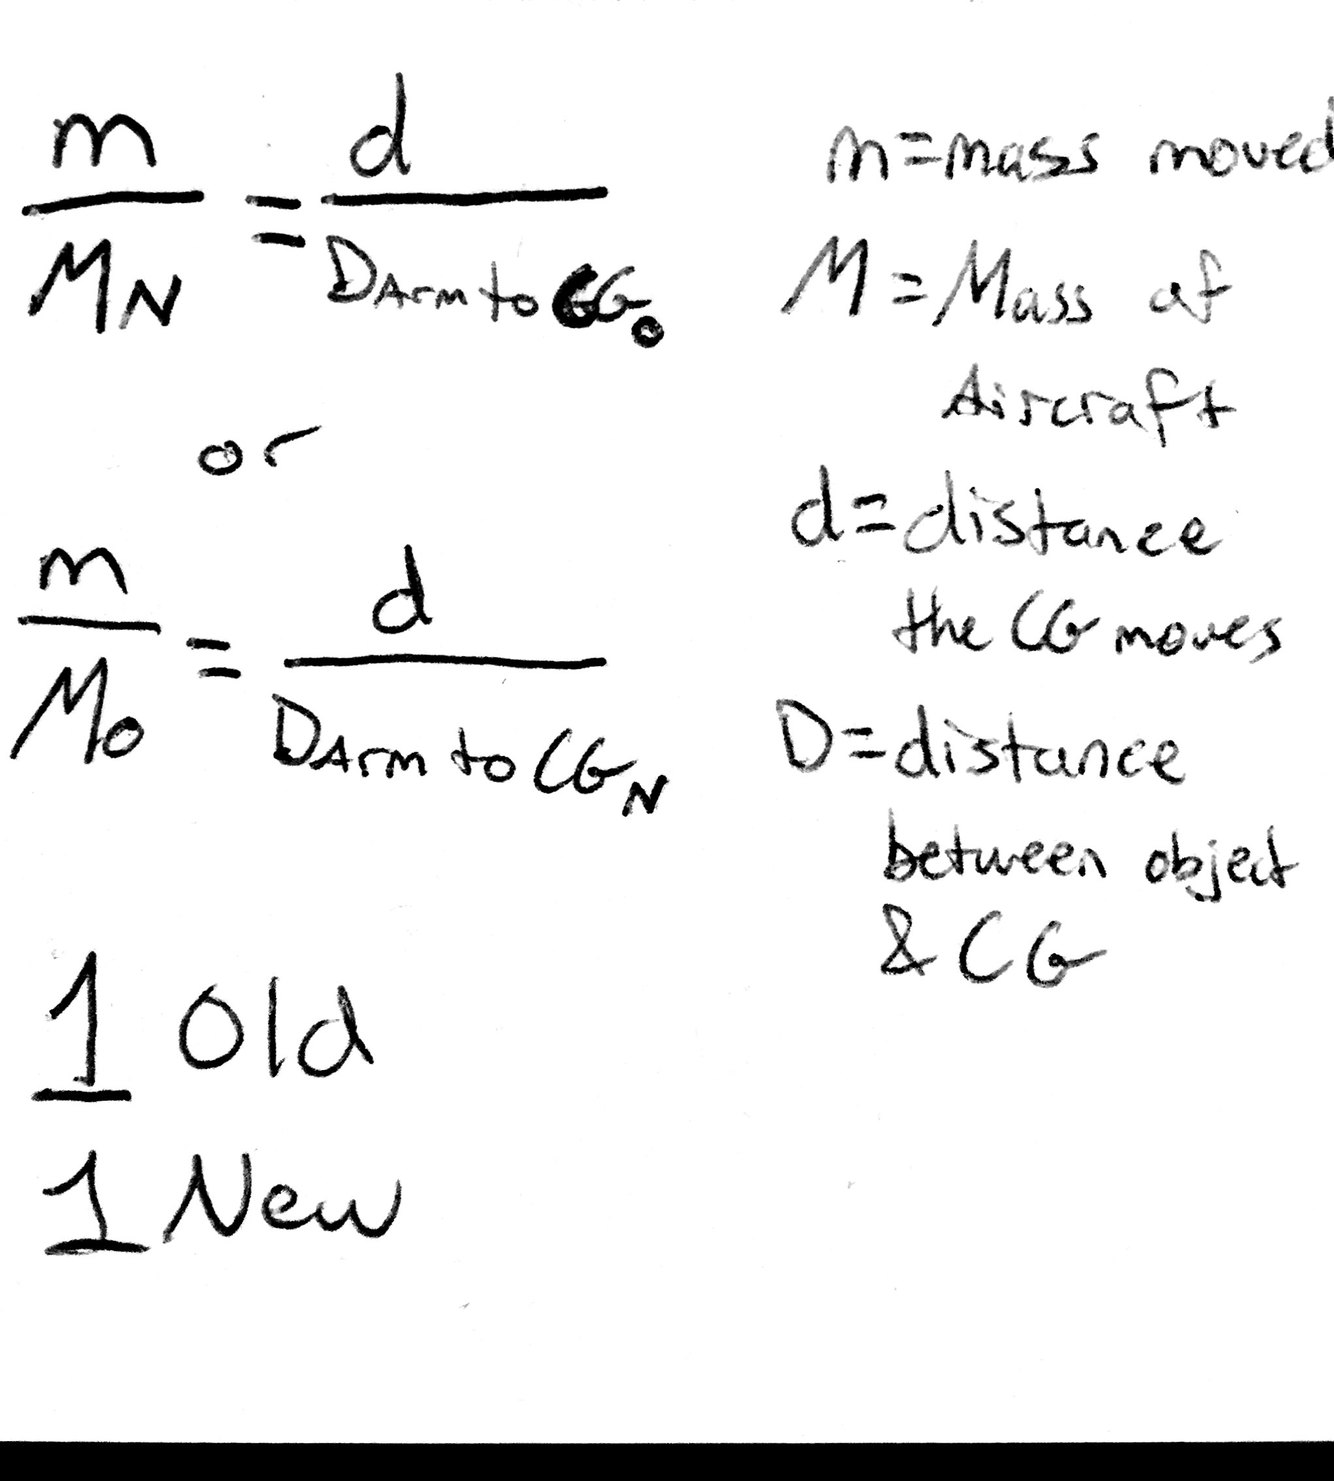 m
M_N
=
d
D Arm to CG_O
or
m
M_O
=
d
D Arm to CG_N
1 Old
1 New
m=mass moved
M=Mass of
Aircraft
d=distance
the CG moves
D=distance
between object
& CG